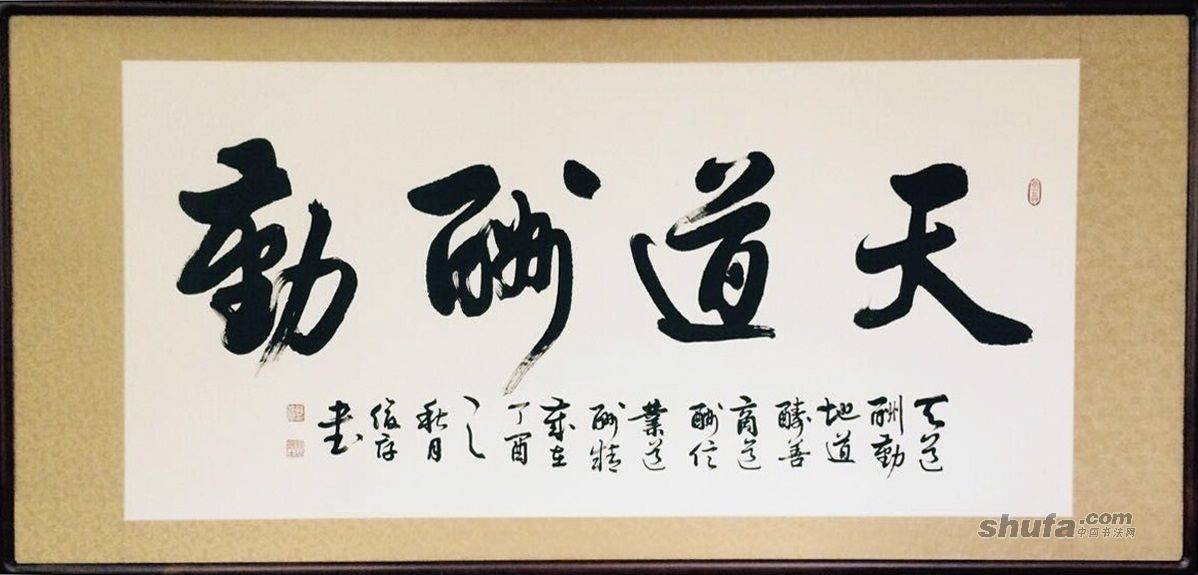 天道酬勤
天道
酬勤
地道
醻善
商道
酬信
業道
酬精
歲在
丁酉
之
秋月
书
shufa.com
中国书法网